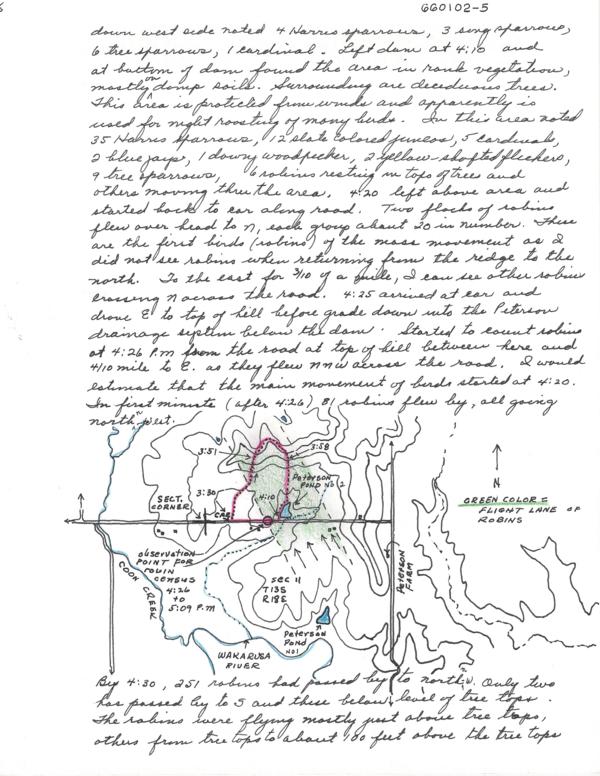 660102-5
down west side noted 4 Harris sparrows, 3 song sparrows,
6 tree sparrows, 1 cardinal. Left dam at 4:10 and
at bottom of dam found the area in rank vegetation,
mostly on damp soils. Surrounding are deciduous trees.
This area is protected from winds and apparently is
used for night roosting of many birds. In this area noted
35 Harris sparrows, 12 slate colored juncos, 5 cardinals,
2 blue jays, 1 downy woodpecker, 2 yellow-shafted flickers,
9 tree sparrows, 6 robins resting in tops of trees and
others moving thru the area. 4:20 left above area and
started back to car along road. Two flocks of robins
flew over head to N, each group about 20 in number. These
are the first birds (robins) of the mass movement as I
did not see robins when returning from the redge to the
north. To the east for 3/10 of a mile, I can see other robins
crossing N across the road. 4:25 arrived at car and
drove E to top of hill before grade down into the Peterson
drainage septum below the dam. Started to count robins
at 4:26 P.M from the road at top of hill between here and
4/10 mile to E. as they flew NNW across the road. I would
estimate that the main movement of birds started at 4:20.
In first minute (after 4:26) 81 robins flew by, all going
north N west.
3:51
3:58
PETERSON
POND NO 2
3:30
4:10
SECT.
CORNER
CAR
N
GREEN COLOR =
FLIGHT LANE OF
ROBINS
OBSERVATION
POINT FOR
ROBIN
CENSUS
4:26
TO
5:09 P.M
COON CREEK
SEC 11
T13S
R18E
PETERSON
FARM
PETERSON
POND
NO1
WAKARUSA
RIVER
By 4:30, 251 robins had passed by to north N W. Only two
has passed by to S and these below level of tree tops.
The robins were flying mostly just above tree tops,
others from tree tops to about 100 feet above the tree tops